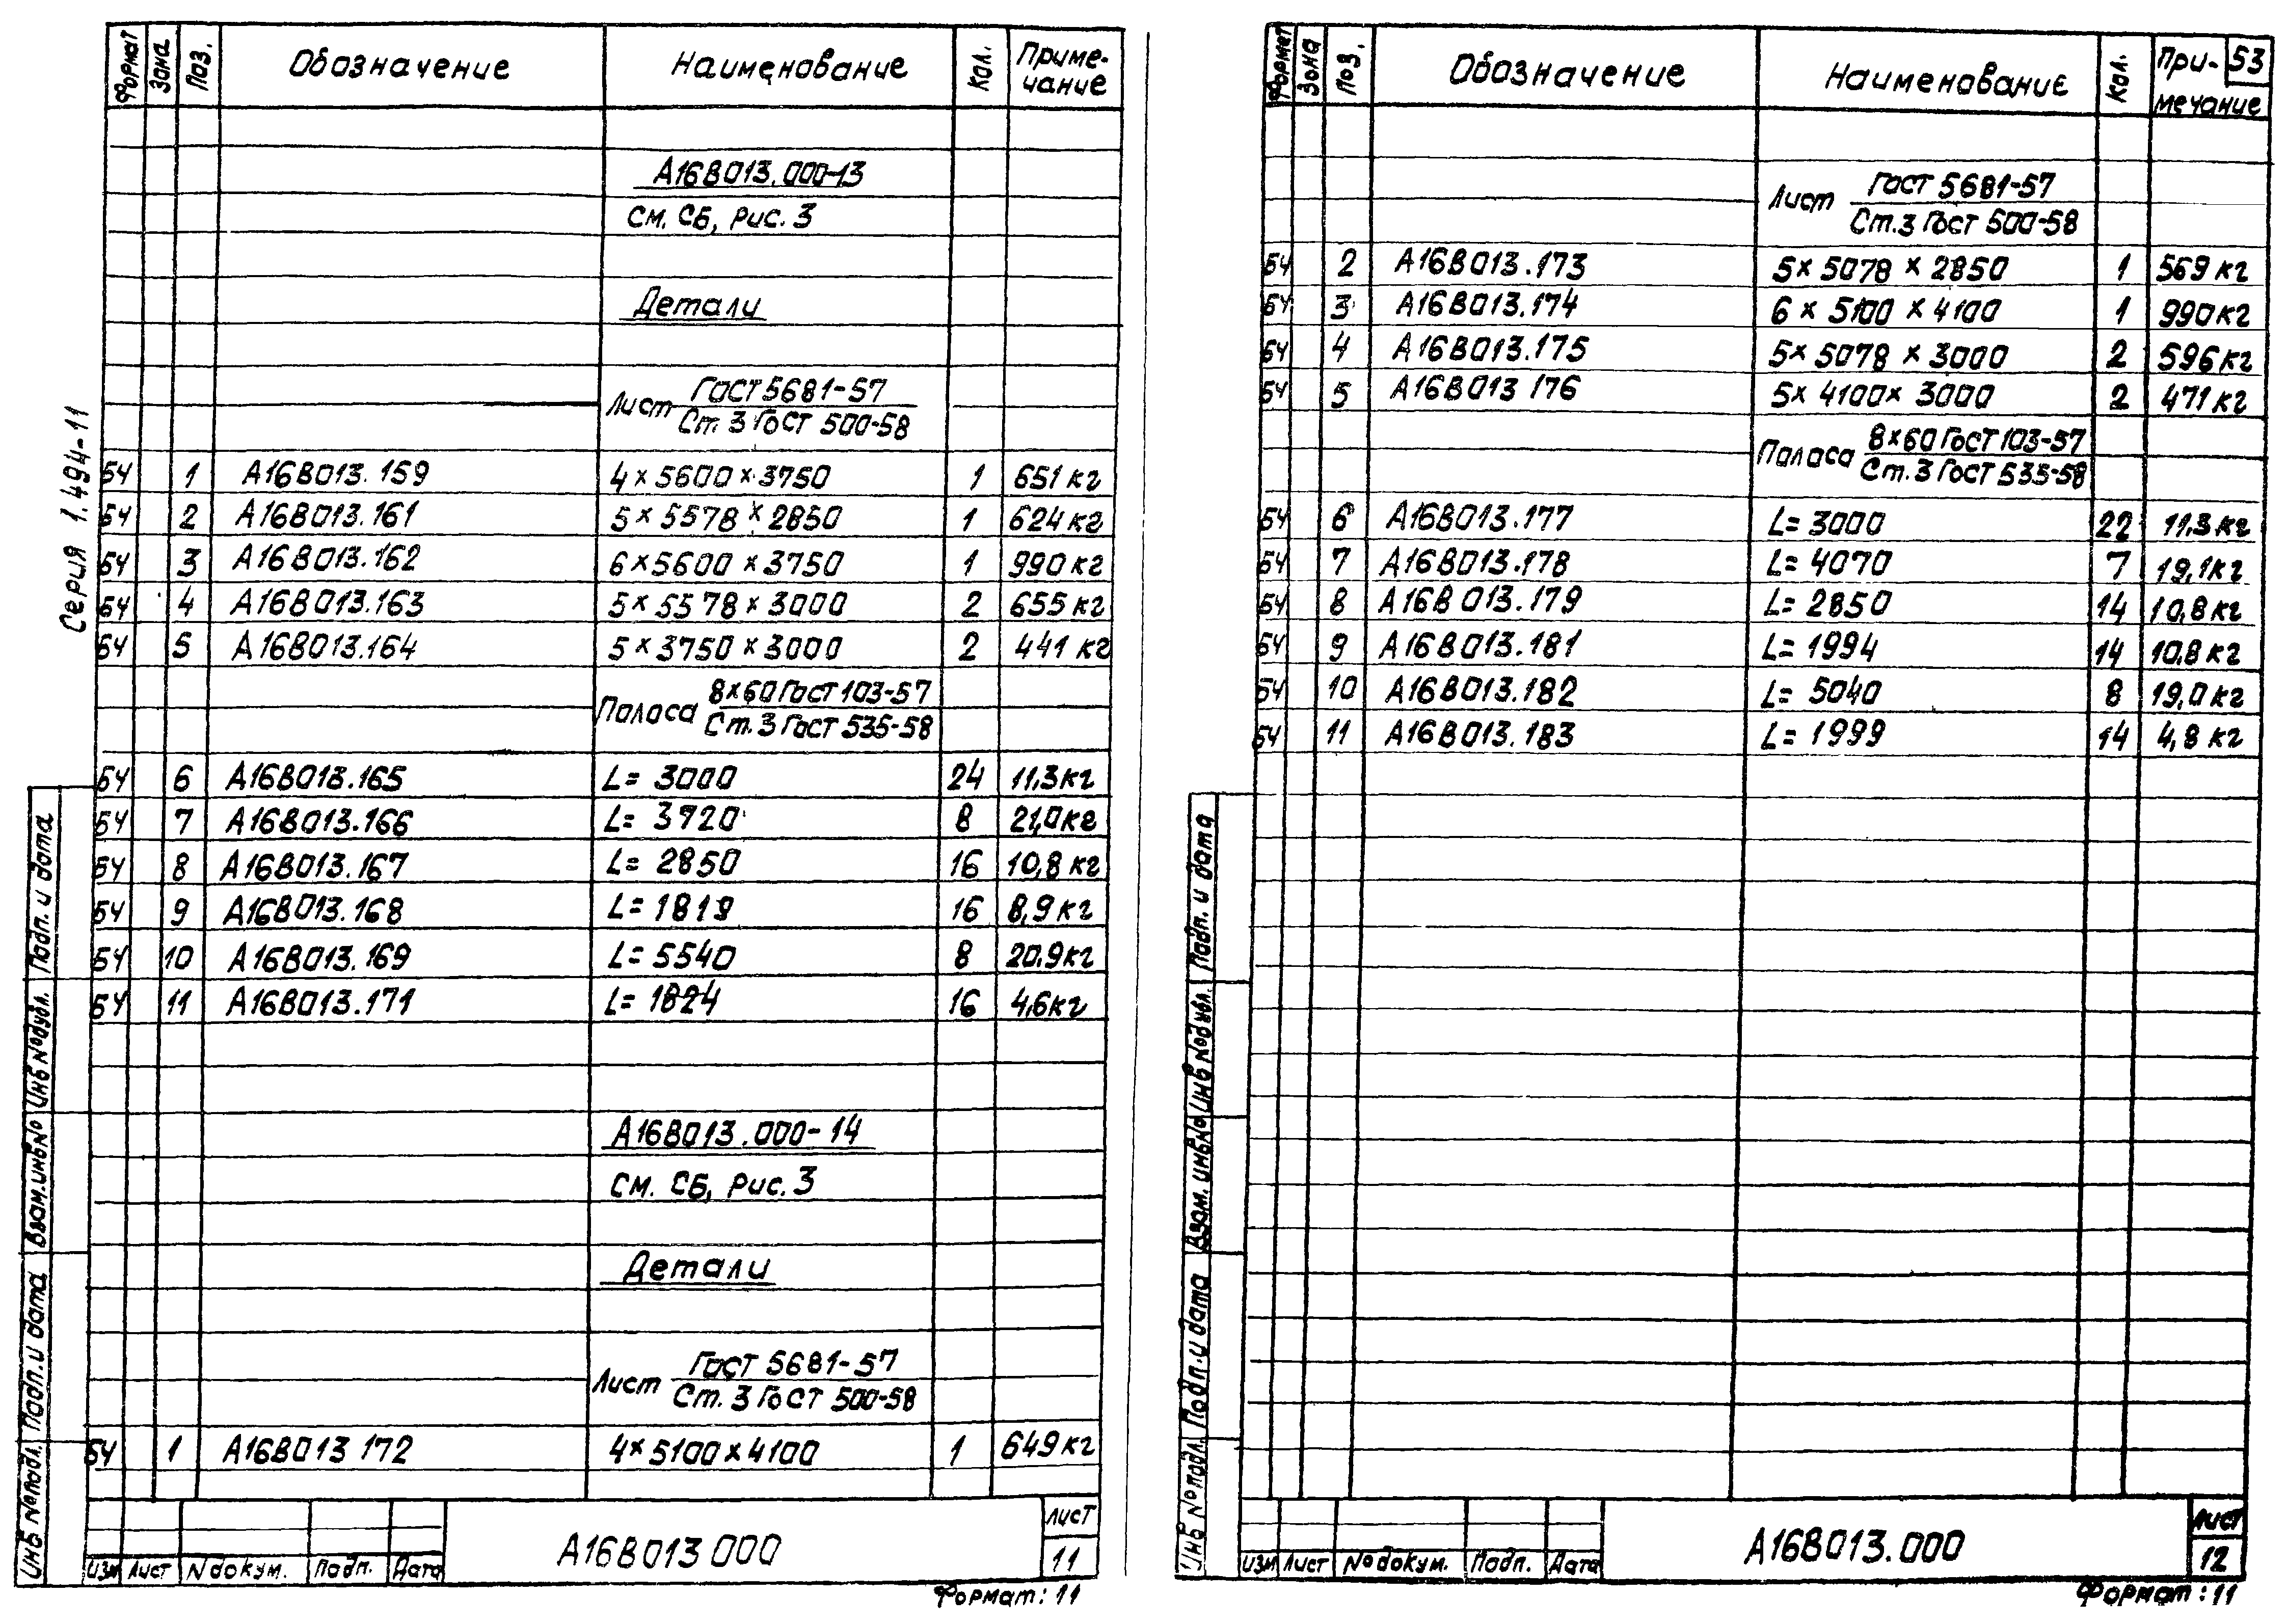 Серия 1.494-11
Формат Зона Поз. Обозначение Наименование Кол. Приме-
чание
А16В013.000-13
См. СБ, рис. 3
Детали
Лист ГОСТ 5681-57
Ст. 3 ГОСТ 500-58
БЧ 1 А16В013.159 4×5600×3750 1 651 кг
БЧ 2 А16В013.161 5×5578×2850 1 624 кг
БЧ 3 А16В013.162 6×5600×3750 1 990 кг
БЧ 4 А16В013.163 5×5578×3000 2 655 кг
БЧ 5 А16В013.164 5×3750×3000 2 441 кг
Полоса 8×60 ГОСТ 103-57
Ст. 3 ГОСТ 535-58
БЧ 6 А16В013.165 L= 3000 24 11,3 кг
БЧ 7 А16В013.166 L= 3720 8 21,0 кг
БЧ 8 А16В013.167 L= 2850 16 10,8 кг
БЧ 9 А16В013.168 L= 1819 16 8,9 кг
БЧ 10 А16В013.169 L= 5540 8 20,9 кг
БЧ 11 А16В013.171 L= 1824 16 4,6 кг
А16В013.000-14
См. СБ, рис. 3
Детали
Лист ГОСТ 5681-57
Ст. 3 ГОСТ 500-58
БЧ 1 А16В013 172 4×5100×4100 1 649 кг
Инв № подл. Подп. и дата Взам. инв № Инв № дубл. Подп. и дата
Изм Лист № докум. Подп. Дата
А16В013 000
Лист
11
Формат: 11
53
Формат Зона Поз. Обозначение Наименование Кол. При-
мечание
Лист ГОСТ 5681-57
Ст. 3 ГОСТ 500-58
БЧ 2 А16В013.173 5×5078×2850 1 569 кг
БЧ 3 А16В013.174 6×5100×4100 1 990 кг
БЧ 4 А16В013.175 5×5078×3000 2 596 кг
БЧ 5 А16В013 176 5×4100×3000 2 471 кг
Полоса 8×60 ГОСТ 103-57
Ст. 3 ГОСТ 535-58
БЧ 6 А16В013.177 L= 3000 22 11,3 кг
БЧ 7 А16В013.178 L= 4070 7 19,1 кг
БЧ 8 А16В013.179 L= 2850 14 10,8 кг
БЧ 9 А16В013.181 L= 1994 14 10,8 кг
БЧ 10 А16В013.182 L= 5040 8 19,0 кг
БЧ 11 А16В013.183 L= 1999 14 4,8 кг
Инв № подл. Подп. и дата Взам. инв № Инв № дубл. Подп. и дата
Изм Лист № докум. Подп. Дата
А16В013.000
Лист
12
Формат: 11